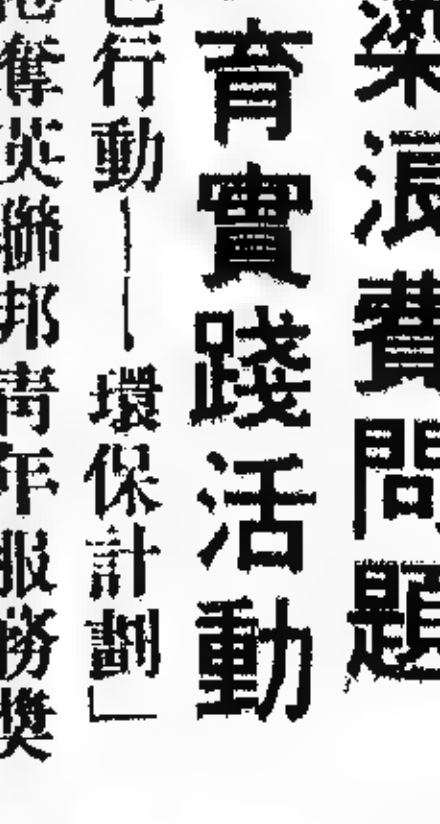 染浪費問題
育實踐活動
行動——環保計劃」
奪英聯邦青年服務獎